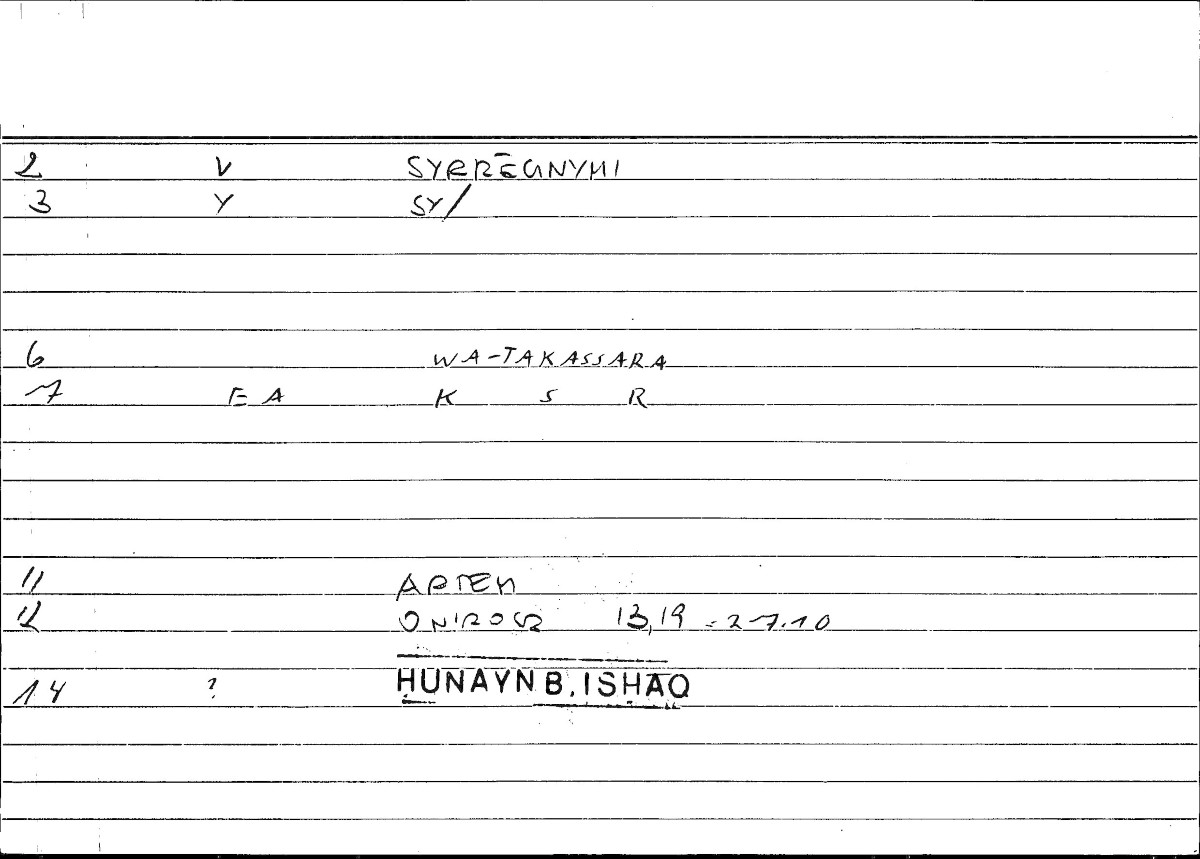 2 V SYRRĒGNYMI
3 Y SY/
6 WA-TAKASSARA
7 EA K S R
11 ARTEM
12 ONIROCR 13,19 = 27.10
14 ? HUNAYN B. ISHAQ